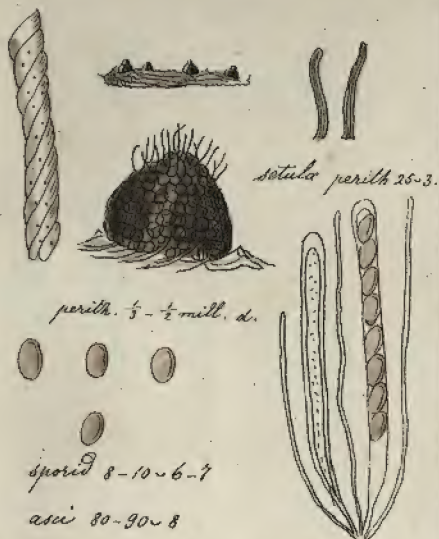 setulæ perith 25~3.
perith. 1/3 - 1/2 mill. d.
sporid 8-10~6-7
asci 80-90~8